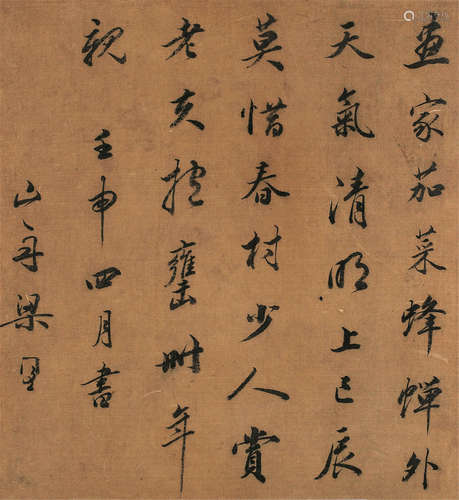 畫家茄菜蜂蟬外
天氣清明上巳辰
莫惜春村少人賞
老亥抱甕卌年
親
壬申四月書
山舟梁同